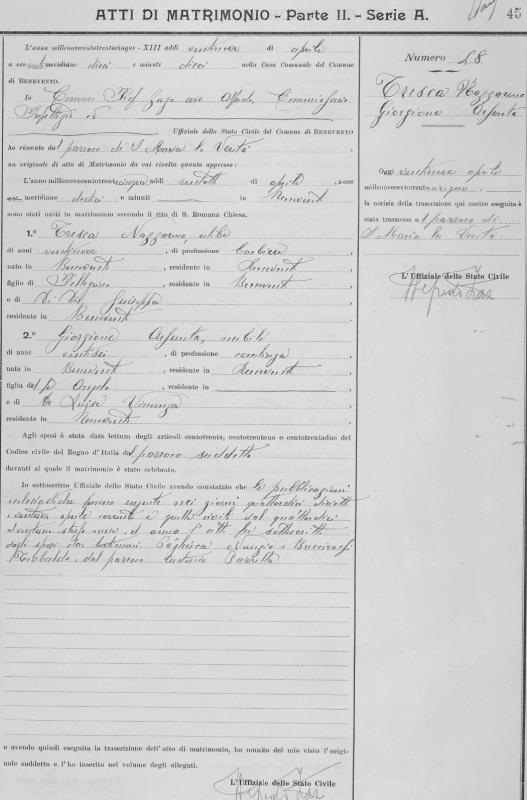 ATTI DI MATRIMONIO - Parte II. - Serie A.
45
L'anno millenovecentotrentacinque - XIII addì ventinove di aprile
a ore antimeridiane dieci e minuti dieci nella Casa Comunale del Comune
di BENEVENTO.
Io Commre Prof Zazo avv Alfredo, Commissario
Prefettizio ed
Uffiziale dello Stato Civile del Comune di BENEVENTO
ho ricevuto dal parroco di S. Maria la Verità
un originale di atto di Matrimonio da cui risulta quanto appresso:
L'anno millenovecentotrentacinque addì ventotto di aprile, a ore
meridiane dodici e minuti in Benevento
sono stati uniti in matrimonio secondo il rito di S. Romana Chiesa.
1.° Tresca Nazzareno, celibe
di anni ventinove, di professione barbiere
nato in Benevento, residente in Benevento
figlio di Pellegrino, residente in Benevento
e di De Vio Giuseppa
residente in Benevento
2.° Giorgione Assunta, nubile
di anni ventisei, di professione casalinga
nata in Benevento, residente in Benevento
figlia di Angelo, residente in
e di Luisa Vicenza
residente in Benevento
Agli sposi è stata data lettura degli articoli centotrenta, centotrentuno e centotrentadue del
Codice civile del Regno d'Italia dal parroco suddetto
davanti al quale il matrimonio è stato celebrato.
Io sottoscritto Uffiziale dello Stato Civile avendo constatato che le pubblicazioni
ecclesiastiche furono eseguite nei giorni quattordici, diciotto
e ventuno aprile corrente e quelle civili dal quattordici
al ventuno stesso mese ed anno. L'atto fu sottoscritto
dagli sposi dai testimoni Nunzio e
dal parroco
e avendo quindi eseguita la trascrizione dell'atto di matrimonio, ho munito del mio visto l'originale suddetto e l'ho inserito nel volume degli allegati.
L'Uffiziale dello Stato Civile
Alfredo Zazo
Numero 48
Tresca Nazzareno
Giorgione Assunta
Oggi ventinove aprile
millenovecentotrentacinque
la notizia della trascrizione qui contro eseguita è
stata trasmessa al parroco di
S. Maria la Verità
L'Uffiziale dello Stato Civile
Alfredo Zazo